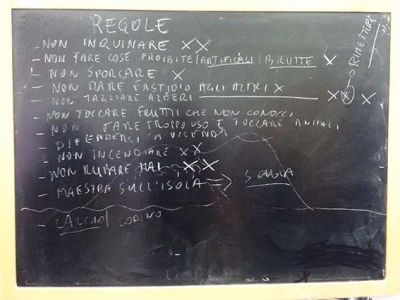 REGOLE
- NON INQUINARE X X
- NON FARE COSE PROIBITE/ARTIFICIALI/BRUTTE X
- NON SPORCARE X
- NON DARE FASTIDIO AGLI ALTRI X
- NON TAGLIARE ALBERI X X X
- NON TOCCARE FRUTTI CHE NON CONOSCI
- NON FARE TROPPO USO E TOCCARE ANIMALI
- DIFENDERSI A VICENDA
- NON INCENDIARE X X
- NON RUBARE MAI X X
- MAESTRA SULL'ISOLA →
- CALCIO/